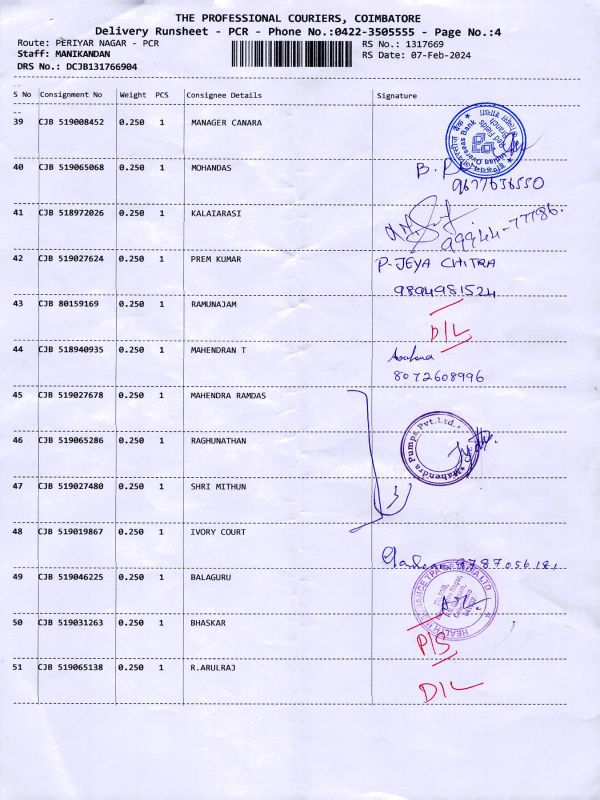 THE PROFESSIONAL COURIERS, COIMBATORE
Delivery Runsheet - PCR - Phone No.:0422-3505555 - Page No.:4
Route: PERIYAR NAGAR - PCR RS No.: 1317669
Staff: MANIKANDAN RS Date: 07-Feb-2024
DRS No.: DCJB131766904
S No Consignment No Weight PCS Consignee Details Signature
39 CJB 519008452 0.250 1 MANAGER CANARA
40 CJB 519065068 0.250 1 MOHANDAS
9677636550
41 CJB 518972026 0.250 1 KALAIARASI
99944-77786.
42 CJB 519027624 0.250 1 PREM KUMAR P-JEYA CHITRA
9894981524
43 CJB 80159169 0.250 1 RAMUNAJAM
D/L
44 CJB 518940935 0.250 1 MAHENDRAN T
8072608996
45 CJB 519027678 0.250 1 MAHENDRA RAMDAS
Mahendra Pumps Pvt.Ltd.,
46 CJB 519065286 0.250 1 RAGHUNATHAN
47 CJB 519027480 0.250 1 SHRI MITHUN
48 CJB 519019867 0.250 1 IVORY COURT
9787056181
49 CJB 519046225 0.250 1 BALAGURU
50 CJB 519031263 0.250 1 BHASKAR
P/S
51 CJB 519065138 0.250 1 R.ARULRAJ
D/L